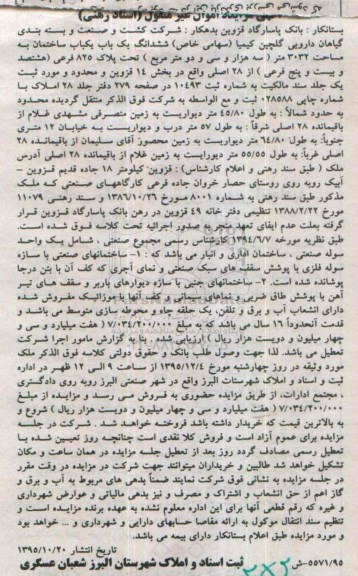 آگهی مزایده اموال غیر منقول (اسناد رهنی)
بستانکار : بانک پاسارگاد قزوین بدهکار : شرکت کشت و صنعت و بسته بندی
گیاهان دارویی گلچین کیمیا (سهامی خاص) ششدانگ یک باب یکباب ساختمان به
مساحت ۳۰۳۲ متر ( سه هزار و سی و دو متر مربع ) تحت پلاک ۸۲۵ فرعی (هشتصد
و بیست و پنج فرعی ) از ۲۸ اصلی واقع در بخش ۱۴ قزوین و محدود و مورد ثبت
یک جلد سند مالکیت به شماره ثبت ۱۰۴۹۳ در صفحه ۲۷۹ دفتر جلد ۲۸ املاک با
شماره چاپی ۰۲۸۵۸۸ ثبت و مع الواسطه به شرکت فوق الذکر منتقل گردیده محدود
به حدود شمالاً : به طول ۴۵/۸۰ متر دیواریست به زمین متصرفی مشهدی غلام از
باقیمانده ۲۸ اصلی شرقاً : به طول ۵۷ متر درب و دیواریست به خیابان ۱۲ متری
جنوباً: به طول ۶۴/۸۰ متر دیواریست به زمین محصور آقای سلیمان از باقیمانده ۲۸
اصلی غرباً: به طول ۵۵/۵۵ متر دیواریست به زمین غلام از باقیمانده ۲۸ اصلی آدرس
ملک ( طبق سند رهنی و اعلام کارشناس) : قزوین کیلومتر ۱۸ جاده قدیم قزوین -
آبیک روبه روی روستای حصار خروان جاده فرعی کارگاههای صنعتی که ملک
مذکور طبق سند رهنی به شماره ۸۰۰۱ مورخ ۱۳۸۶/۱۰/۲۶ و سند رهنی ۱۱۰۷۹
مورخ ۱۳۸۸/۲/۲۲ تنظیمی دفتر خانه ۴۹ قزوین در رهن بانک پاسارگاد قزوین قرار
گرفته بعلت عدم ایفای تعهد منجر به صدور اجرائیه تحت کلاسه فوق شده است.
طبق نظریه مورخه ۱۳۹۴/۶/۷ کارشناس رسمی مجموع صنعتی ، شامل یک واحد
سوله صنعتی ، ساختمان اداری و انبار می باشد که : ۱- ساختمانهای صنعتی با سازه
سوله فلزی با پوشش سقف های سبک صنعتی و نمای آجری که کف آن با بتن درجا
پوشانده شده است. ۲- ساختمانهای جنبی با سازه دیوارهای باربر و سقف های تیر
آهن با پوشش طاق ضربی و نماهای سیمانی و کف آنها با موزائیک مفروش شده
دارای انشعاب آب و برق و تلفن، یک حلقه چاه و محوطه سازی متوسط می باشد و
قدمت آنحدوداً ۱۶ سال می باشد که به مبلغ ۷/۰۳۴/۲۰۰/۰۰۰ ( هفت میلیارد و سی و
چهار میلیون و دویست هزار ریال ) ارزیابی شده و بنا به گزارش مامور اجرا شرکت
تعطیل می باشد. لذا جهت وصول طلب بانک و حقوق دولتی کلاسه فوق الذکر ملک
مورد وثیقه در روز چهارشنبه مورخ ۱۳۹۵/۱۲/۴ از ساعت ۹ الی ۱۲ ظهر در اداره
ثبت و اسناد و املاک شهرستان البرز واقع در شهر صنعتی البرز روبه روی دادگستری
، مجتمع ادارات، از طریق مزایده حضوری به فروش می رسد و مزایده از مبلغ
۷/۰۳۴/۲۰۰/۰۰۰ ( هفت میلیارد و سی و چهار میلیون و دویست هزار ریال ) شروع و
به بالاترین قیمت که خریدار داشته باشد فروخته خواهد شد . شرکت در جلسه
مزایده برای عموم آزاد است و فروش کلا نقدی است چنانچه روز تعیین شده با
تعطیل رسمی مصادف گردد روز بعد از تعطیل جلسه مزایده در همان ساعت و مکان
تشکیل خواهد شد طالبین و خریداران میتوانند جهت شرکت در مزایده در وقت مقرر
در جلسه مزایده به نشانی فوق شرکت نمایند ضمناً بدهی های مربوط به آب و برق و
گاز اعم از حق انشعاب و اشتراک و مصرف و نیز بدهی مالیاتی و عوارض شهرداری
و غیره که رقم قطعی آنها برای این اداره معلوم نشده به عهده برنده مزایده است و
تنظیم سند انتقال موکول به ارائه مفاصا حسابهای دارایی و شهرداری و ... خواهد بود
و مورد مزایده طبق اعلام بستانکار دارای بیمه می باشد.
تاریخ انتشار ۱۳۹۵/۱۰/۲۰
۵۵۷۱/۹۵-ش ثبت اسناد و املاک شهرستان البرز شعبان عسگری
۲×۲